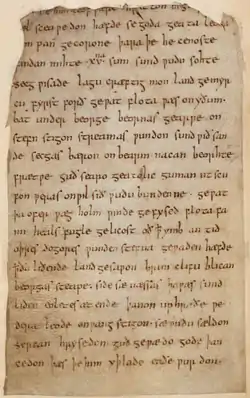 hæfde se goda geata leoda
pan gecorone þara þe he cenoste
findan mihte .xvna. sum sund ƿudu sohte
secg ƿisade lagu cræftig mon land gemyr
cu fyrst forð geƿat flota ƿæs on yðum.
bat under beorge beornas gearƿe on
stefn stigon streamas ƿundon sund ƿið san
de secgas bæron on bearm nacan beorhte
frætƿe guð searo geatolic guman ut scu
fon ƿeras on ƿil sið ƿudu bundenne. geƿat
þa ofer ƿæg holm ƿinde gefysed flota fa
mi heals fugle gelicost oð ꝥ ymb an tid
oþres dogores ƿunden stefna geƿaden hæfde
ꝥ ða liðende land gesaƿon brim clifu blican
beorgas steape side sæ næssas þa ƿæs sund
liden eoletes æt ende þanon up hraðe ƿe
dera leode on ƿang stigon sæ ƿudu sældon
syrcan hrysedon guð geƿædo gode þan
cedon þæs þe him yþ lade eaðe ƿurdon.